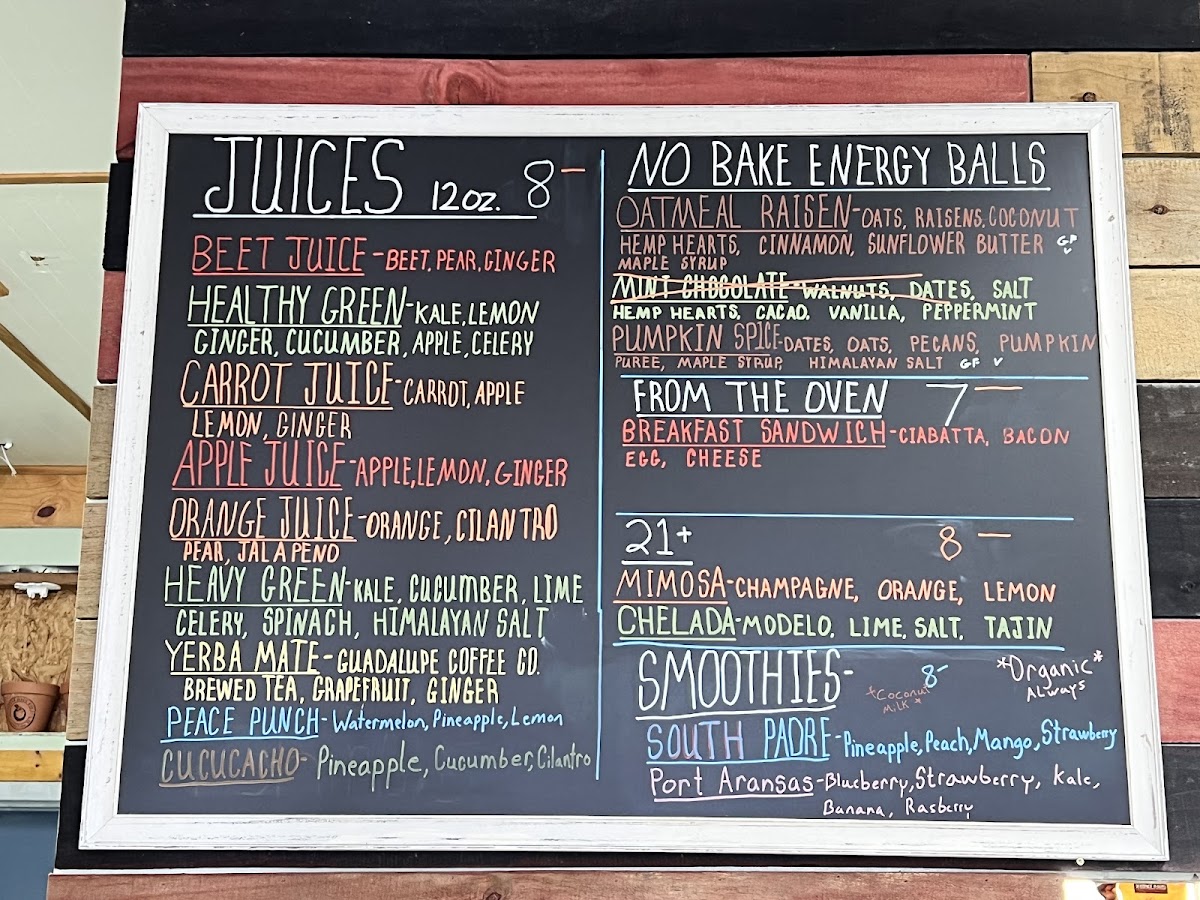 JUICES 12oz. 8-
BEET JUICE-BEET, PEAR, GINGER
HEALTHY GREEN-KALE, LEMON
GINGER, CUCUMBER, APPLE, CELERY
CARROT JUICE-CARROT, APPLE
LEMON, GINGER
APPLE JUICE-APPLE, LEMON, GINGER
ORANGE JUICE-ORANGE, CILANTRO
PEAR, JALAPENO
HEAVY GREEN-KALE, CUCUMBER, LIME
CELERY, SPINACH, HIMALAYAN SALT
YERBA MATE-GUADALUPE COFFEE CO.
BREWED TEA, GRAPEFRUIT, GINGER
PEACE PUNCH-Watermelon, Pineapple, Lemon
CUCUCACHO-Pineapple, Cucumber, Cilantro
NO BAKE ENERGY BALLS
OATMEAL RAISEN-OATS, RAISENS, COCONUT
HEMP HEARTS, CINNAMON, SUNFLOWER BUTTER GF
MAPLE SYRUP V
MINT CHOCOLATE-WALNUTS, DATES, SALT
HEMP HEARTS, CACAO, VANILLA, PEPPERMINT
PUMPKIN SPICE-DATES, OATS, PECANS, PUMPKIN
PUREE, MAPLE SYRUP, HIMALAYAN SALT GF V
FROM THE OVEN 7-
BREAKFAST SANDWICH-CIABATTA, BACON
EGG, CHEESE
21+ 8-
MIMOSA-CHAMPAGNE, ORANGE, LEMON
CHELADA-MODELO, LIME, SALT, TAJIN
SMOOTHIES- 8-
*Coconut
Milk*
*Organic*
ALWAYS
SOUTH PADRE-Pineapple, Peach, Mango, Strawberry
Port Aransas-Blueberry, Strawberry, Kale,
Banana, Rasberry